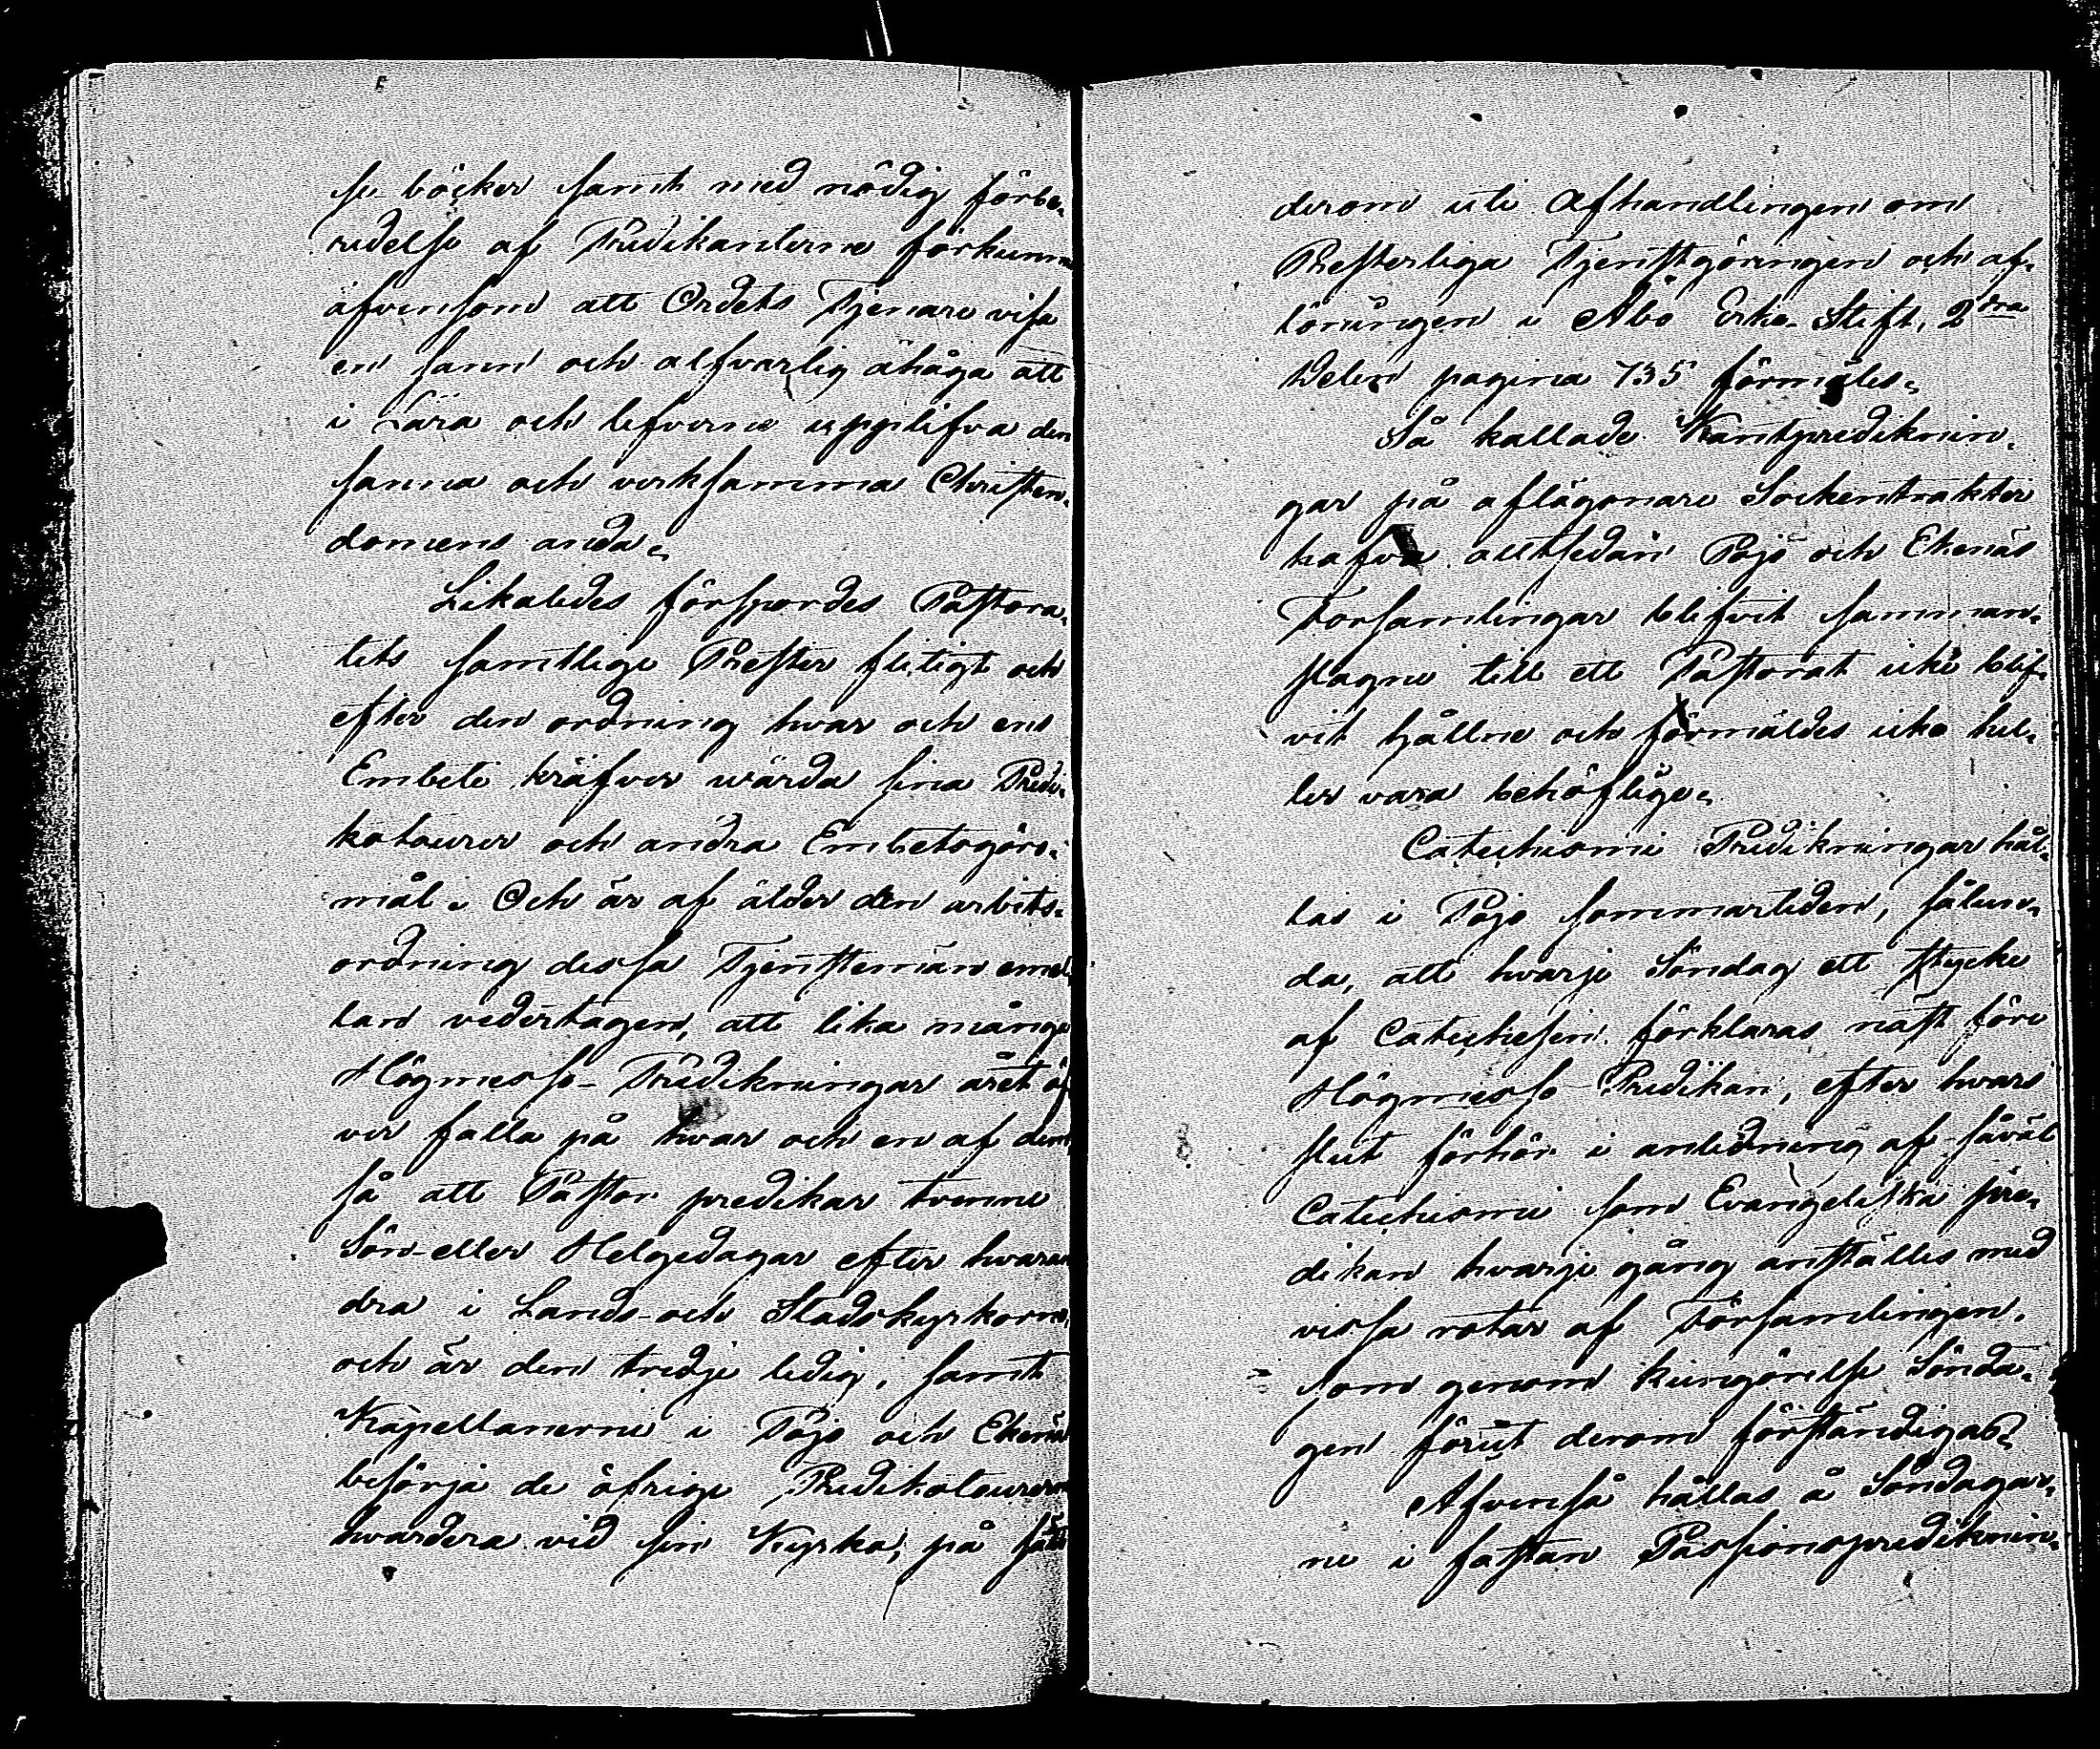 se böcker samt med nödig förbe-
redelse af Predikanterne förkunna
äfvensom att Ordets Tjenare visa
en sann och alfvarlig åhåga att
i Lära och lefverne upplifva den
sanna och verksamma Christen-
domens anda.
Likaledes förspordes Pastora-
tets samtlige Prester flitigt och
efter den ordning hvar och ens
Embete kräfver wårda sina Predi-
kotourer och andra Embetsgöro-
mål. Och är af ålder den arbets-
ordning dessa Tjenstemän emel-
lan vedertagen, att lika många
Högmesso-Predikningar året öf-
ver falla på hvar och en af dem,
så att Pastor predikar tvenne
Sön- eller Helgedagar efter hvaran-
dra i Lands- och Stadskyrkorne,
och är den tredje ledig, samt
Kapellanerne i Pojo och Ekenäs
besörja de öfrige Predikotourerne
hvardera vid sin Kyrka, på sätt
derom uti Afhandlingen om
Presterliga Tjenstgöringen och af-
löningen i Åbo Erke-Stift, 2dra
Delen pagina 735 förmäles.
Så kallade Kantpreediknin-
gar på aflägsnare Sockentrakter
hafva alltsedan Pojo och Ekenäs
Församlingar blifvit samman-
slagne till ett Pastorat icke blif-
vit hållne och förmäldes icke hel-
ler vara behöflige.
Catechismi Predikningar hål-
las i Pojo sommartiden, sålun-
da, att hvarje Söndag ett stycke
af Catechesen förklaras näst före
Högmesso-Predikan, efter hvars
slut förhör i anledning af såväl
Catechismi som Evangeliska pre-
dikan hvarje gång anställes med
vissa rotar af Församlingen,
som genom kungörelse Sönda-
gen förut derom förständigas.
Äfvenså hållas å Söndagar-
ne i fastan Passionsprediknin-